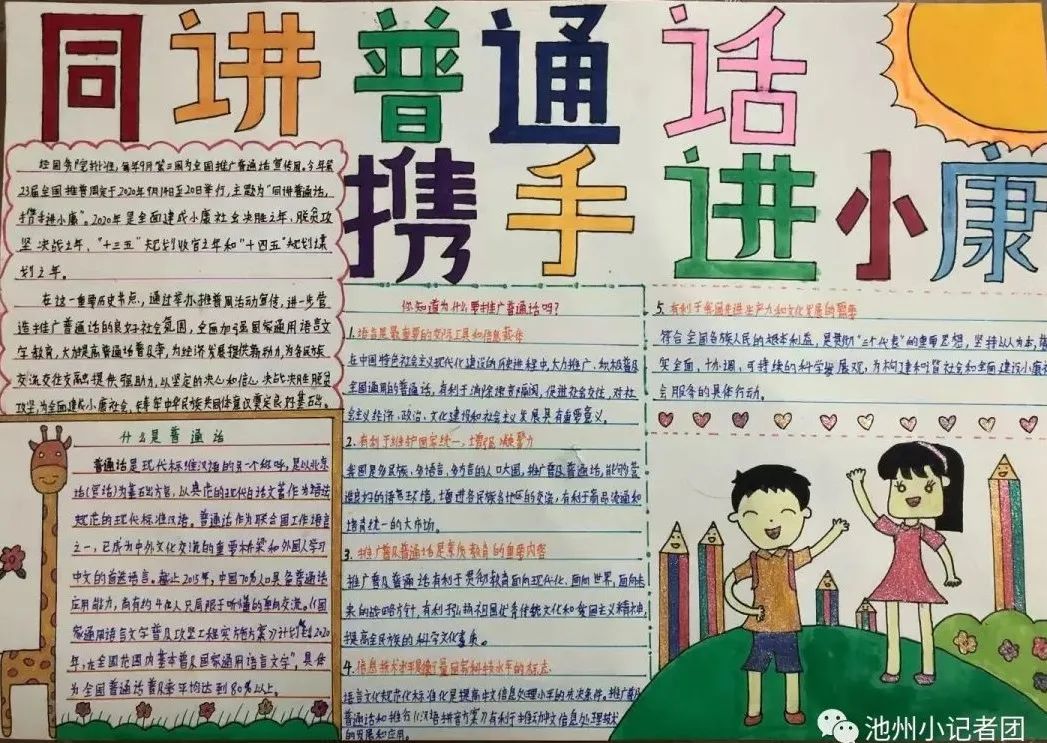 同讲普通话
携手进小康
经国务院批准，每年9月第三周为全国推广普通话宣传周。今年第
23届全国推普周定于2020年9月14日至20日举行，主题为“同讲普通话，
携手进小康”。2020年是全面建成小康社会决胜之年、脱贫攻
坚决战之年、“十三五”规划收官之年和“十四五”规划谋
划之年。
在这一重要历史节点，通过举办推普周活动宣传，进一步营
造推广普通话的良好社会氛围，全面加强国家通用语言文
字教育，大力提高普通话普及率，为经济发展提供新动力，为各民族
交流交往交融提供强助力，以坚定的决心和信心决战决胜脱贫
攻坚，为全面建成小康社会，铸牢中华民族共同体意识奠定良好基础。
什么是普通话
普通话是现代标准汉语的另一个称呼，是以北京
话(官话)为基础方言，以典范的现代白话文著作为语法
规范的现代标准汉语。普通话作为联合国工作语言
之一，已成为中外文化交流的重要桥梁和外国人学习
中文的首选语言。截止2015年，中国70%人口具备普通话
应用能力，尚有约4亿人只局限于听懂的单向交流。《国
家通用语言文字普及攻坚工程实施方案》计划“到2020
年，在全国范围内基本普及国家通用语言文字”，具体
为全国普通话普及率平均达到80%以上。
你知道为什么要推广普通话吗？
1.语言是最重要的交际工具和信息载体
在中国特色社会主义现代化建设的历史进程中，大力推广、积极普及
全国通用的普通话，有利于消除语言隔阂，促进社会交往，对社
会主义经济、政治、文化建设和社会主义发展具有重要意义。
2.有利于维护国家统一，增强凝聚力
我国是多民族、多语言、多方言的人口大国，推广普及普通话，能够营
造良好的语言环境，增进各民族各地区的交流，有利于商品流通和
培育统一的大市场。
3.推广普及普通话是素质教育的重要内容
推广普及普通话有利于贯彻教育面向现代化、面向世界、面向未
来的战略方针，有利弘扬祖国优秀传统文化和爱国主义精神，
提高全民族的科学文化素质。
4.信息技术水平是衡量国家科技水平的标志
语言文化规范化标准化是提高中文信息处理水平的先决条件。推广普及
普通话和推行《汉语拼音方案》有利于推动中文信息处理技术
的发展和应用。
5.有利于我国先进生产力和文化发展的需要
符合全国各族人民的根本利益，是贯彻“三个代表”的重要思想，坚持以人为本，
实全面、协调、可持续的科学发展观，为构建和谐社会和全面建设小康社
会服务的具体行动。
池州小记者团